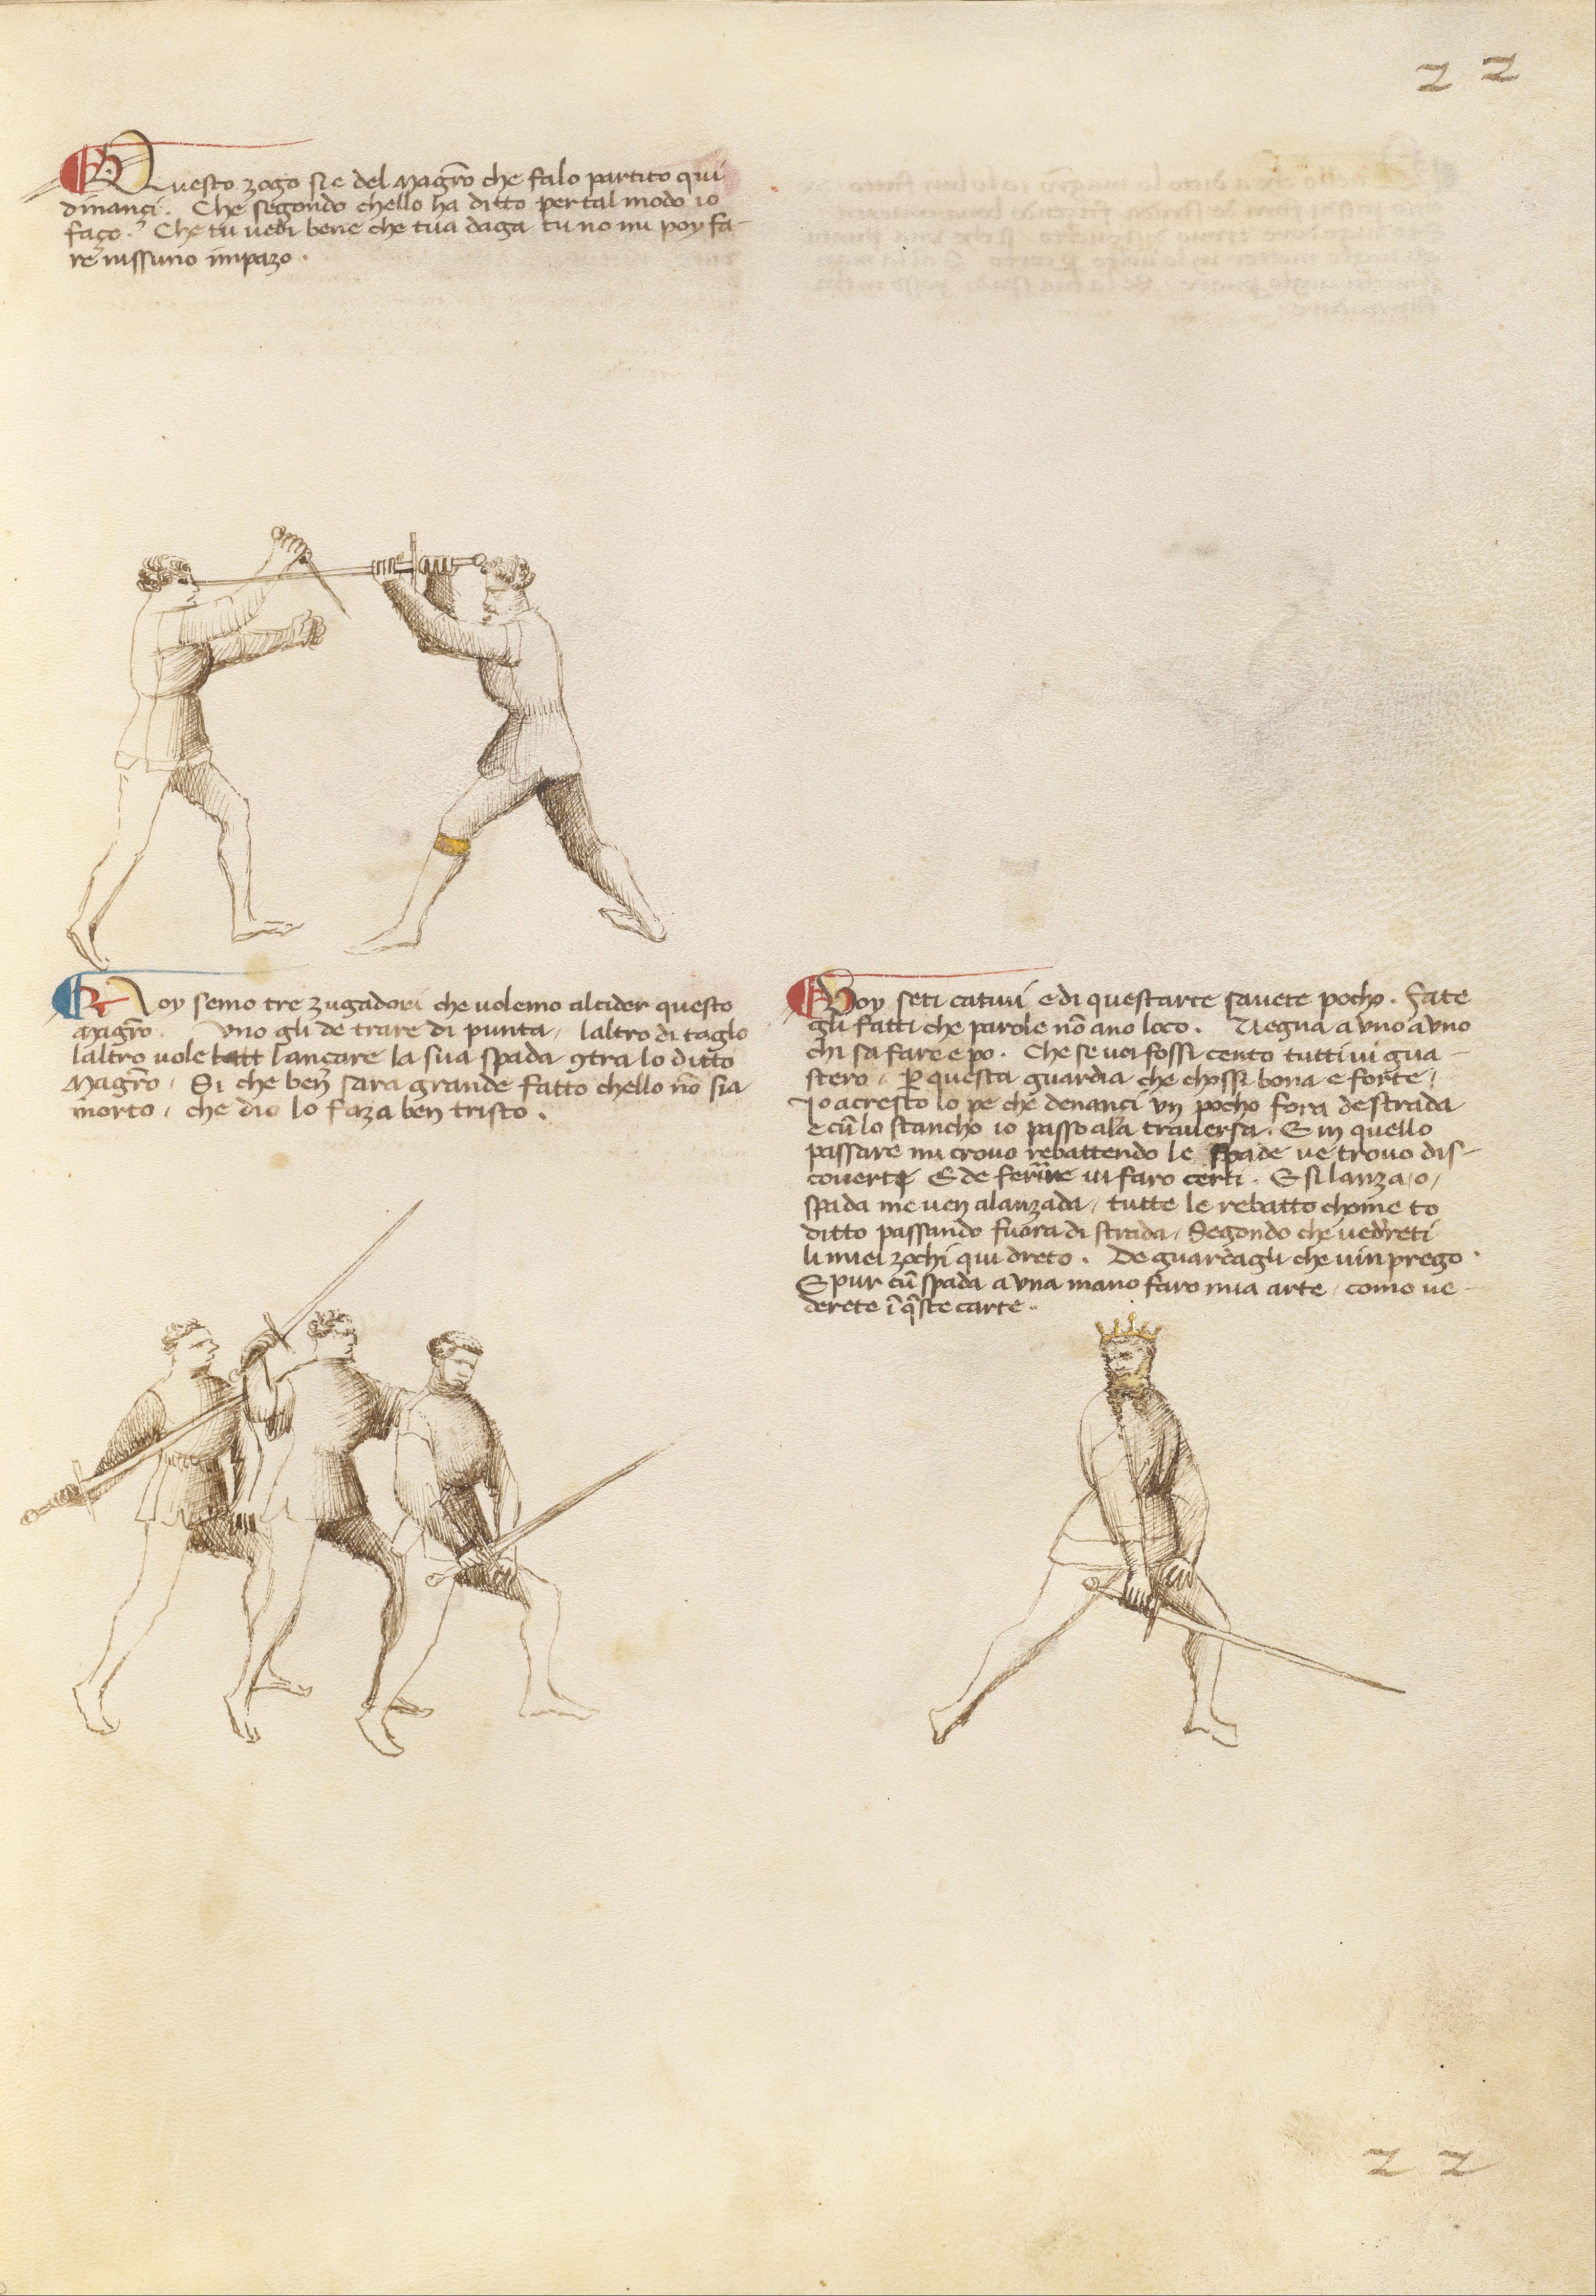 2 2
Questo zogo si e del magr̄o che fa lo partito qui
dinançi. Che segondo ch'ello ha ditto per tal modo io
faço. Che tu vedi bene che tua daga tu no mi poy fa-
re nissuno impazo.
Noy semo tre zugadori che volemo alcider questo
magr̄o. Uno gli de trare di punta, laltro di taglo
laltro vole lançare la sua spada 9tra lo ditto
Magr̄o, Si che ben sara grande fatto chello nō sia
morto, che dio lo faza ben tristo.
Voy seti cativi e di questarte savete pocho. Fate
gli fatti che parole nō ano loco. Uegna a uno a uno
chi sa fare e po. Che se voi fossi cento tutti vi gua-
stero, ꝑ questa guardia che chossi bona e forte,
Io acresco lo pe che denançi un pocho fora de strada
e cū lo stancho io passo ala traversa. E in quello
passare mi crovo rebattendo le spade ve trovo dis-
coverti E de ferire vi faro certi. E si lanza, o,
spada me ven alanzada, tutte le rebatto chome to
ditto passando fuora di strada, Segondo che vedreti
li miei zochi qui dreto. De guardagli che vin prego.
E pur cū spada a una mano faro mia arte, como ve-
derete ī q̄ste carte.
2 2